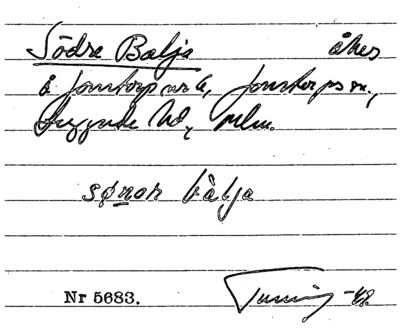 Södre Balja åker
å Jonstorp nr 6, Jonstorps sn.,
Luggude hd, Mlm.
sønər bàlja
Nr 5683. -48.